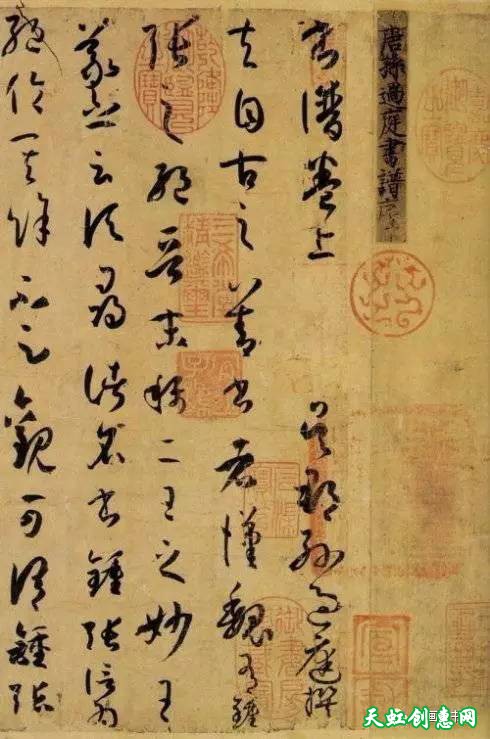 唐孫過庭書譜序
書譜卷上　吳郡孫過庭撰
夫自古之善書者漢魏有鍾
張之絕晉末稱二王之妙王
羲之云頃尋諸名書鍾張信為
絕倫其餘不足觀可謂鍾張
三希堂精鑑璽
宜子孫
天虹创意网